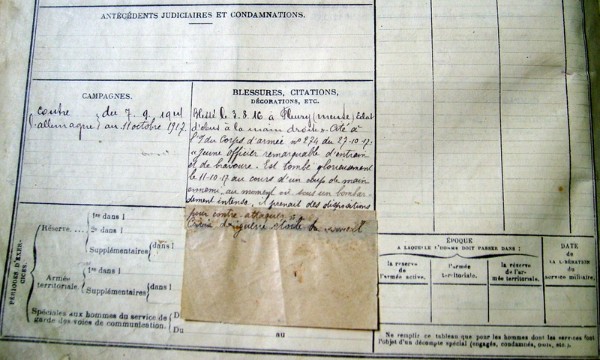 ANTÉCÉDENTS JUDICIAIRES ET CONDAMNATIONS.
CAMPAGNES.
contre
l'allemagne
du 7. 9. 1914
au 11 octobre 1917.
BLESSURES, CITATIONS,
DÉCORATIONS, ETC.
Blessé le 3.8.16 à Fleury (meuse) Eclat
d'obus à la main droite. Cité à
l'O du Corps d'armée n° 274 du 27-10-17:
« Jeune officier remarquable d'entrain
et de bravoure. Est tombé glorieusement
le 11-10-17 au cours d'un coup de main
ennemi, au moment où sous un bombar-
dement intense, il prenait des dispositions
pour contre-attaquer »
Croix de guerre étoile de vermeil
PÉRIODES D'EXER-
CICES.
Réserve.
1re dans l
2e dans l
Supplémentaires
dans l
Armée
territoriale.
1re dans l
Supplémentaires
dans l
Spéciales aux hommes du service de
garde des voies de communication.
Du
Du
au
ÉPOQUE
A LAQUELLE L'HOMME DOIT PASSER DANS :
la réserve
de
l'armée active.
l'armée
territoriale.
la réserve
de l'ar-
mée territoriale.
DATE
de
LA LIBÉRATION
du
service militaire.
Ne remplir ce tableau que pour les hommes dont les services font
l'objet d'un décompte spécial (engagés, condamnés, omis, etc.).